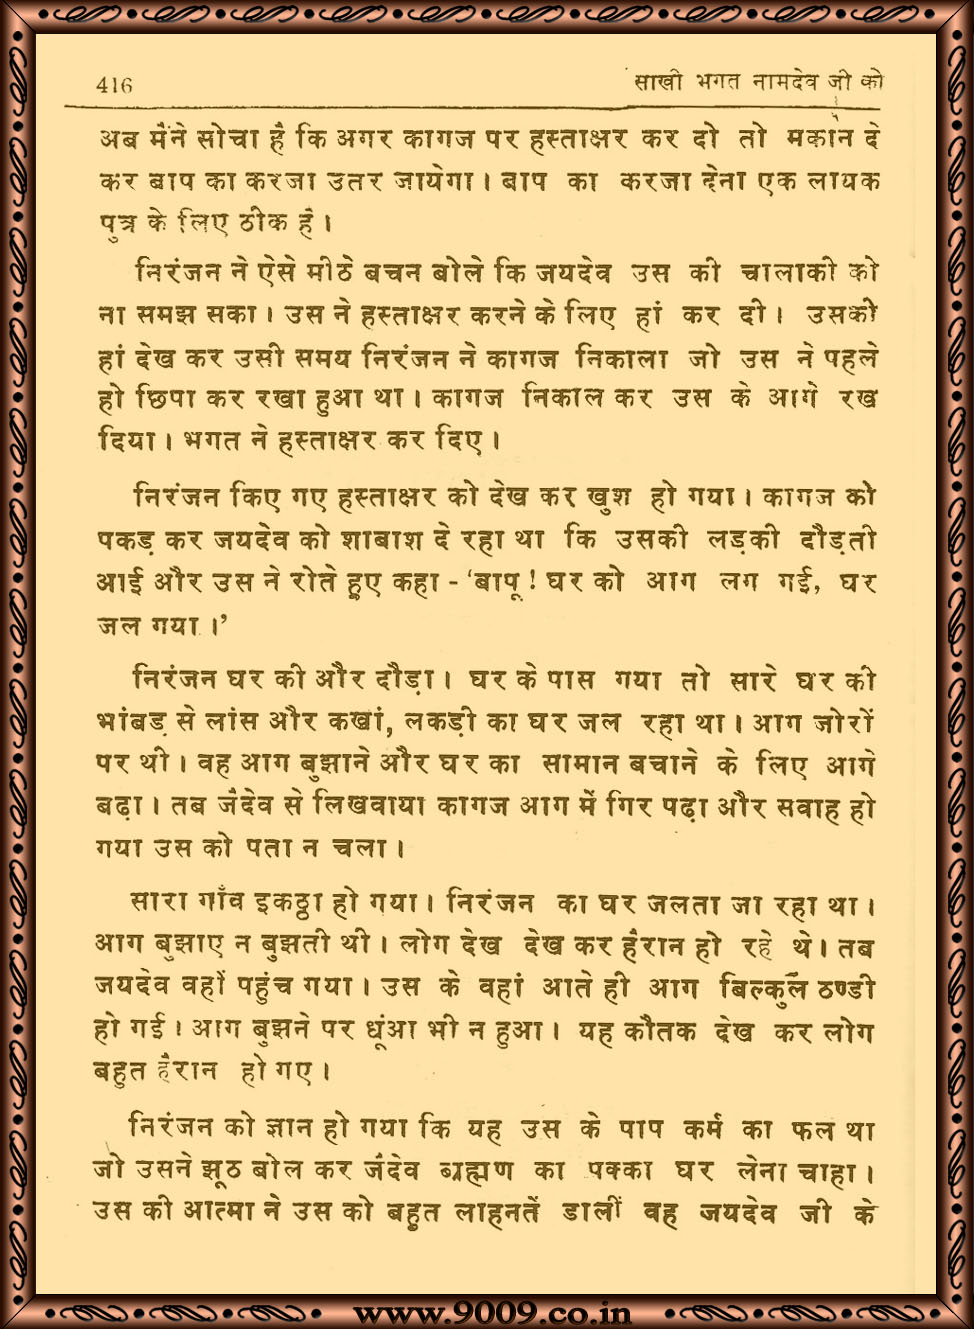 416 साखी भगत नामदेव जी को
अब मैंने सोचा है कि अगर कागज पर हस्ताक्षर कर दो तो मकान दे
कर बाप का करजा उतर जायेगा। बाप का करजा देना एक लायक
पुत्र के लिए ठीक है।
निरंजन ने ऐसे मीठे बचन बोले कि जयदेव उस की चालाकी को
ना समझ सका। उस ने हस्ताक्षर करने के लिए हां कर दी। उसकी
हां देख कर उसी समय निरंजन ने कागज निकाला जो उस ने पहले
हो छिपा कर रखा हुआ था। कागज निकाल कर उस के आगे रख
दिया। भगत ने हस्ताक्षर कर दिए।
निरंजन किए गए हस्ताक्षर को देख कर खुश हो गया। कागज को
पकड़ कर जयदेव को शाबाश दे रहा था कि उसकी लड़की दौड़ती
आई और उस ने रोते हूए कहा - ‘बापू! घर को आग लग गई, घर
जल गया।’
निरंजन घर की और दौड़ा। घर के पास गया तो सारे घर की
भांबड़ से लांस और कखां, लकड़ी का घर जल रहा था। आग जोरों
पर थी। वह आग बुझाने और घर का सामान बचाने के लिए आगे
बढ़ा। तब जैदेव से लिखवाया कागज आग में गिर पढ़ा और सवाह हो
गया उस को पता न चला।
सारा गाँव इकठ्ठा हो गया। निरंजन का घर जलता जा रहा था।
आग बुझाए न बुझती थी। लोग देख देख कर हैरान हो रहे थे। तब
जयदेव वहाँ पहुंच गया। उस के वहां आते ही आग बिल्कुल ठण्डी
हो गई। आग बुझने पर धूंआ भी न हुआ। यह कौतक देख कर लोग
बहुत हैरान हो गए।
निरंजन को ज्ञान हो गया कि यह उस के पाप कर्म का फल था
जो उसने झूठ बोल कर जैदेव ब्रह्मण का पक्का घर लेना चाहा।
उस की आत्मा ने उस को बहुत लाहनतें डालीं वह जयदेव जी के
www.9009.co.in